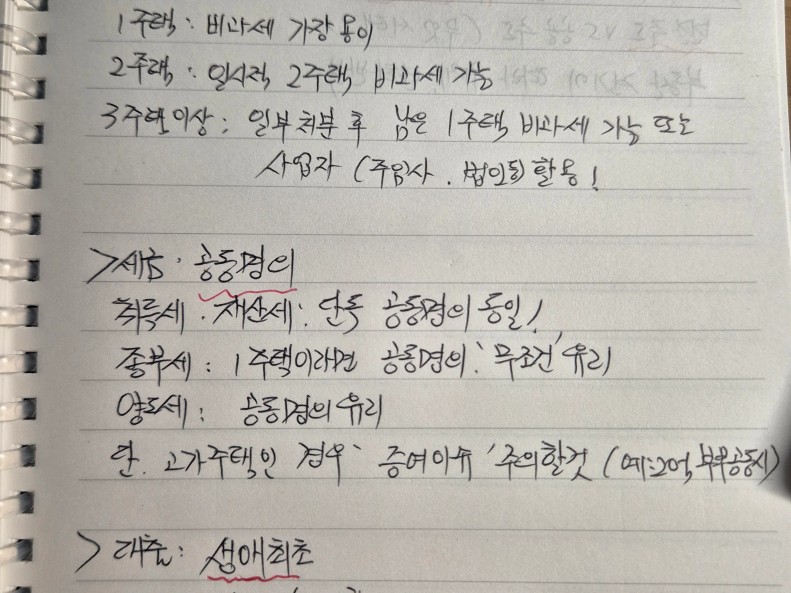 1주택: 비과세 가장 용이
2주택: 일시적 2주택 비과세 가능
3주택이상: 일부처분 후 남은 1주택 비과세 가능 또는
사업자 (주임사. 법인등) 활용!
>세금. 공동명의
취득세. 재산세: 단독 공동명의 동일!
종부세: 1주택이라면 공동명의 '무조건' 유리
양도세: 공동명의 유리
단. 고가주택인 경우 '증여이슈' 주의할것 (예:20억, 부부공동시)
> 대출: 생애최초